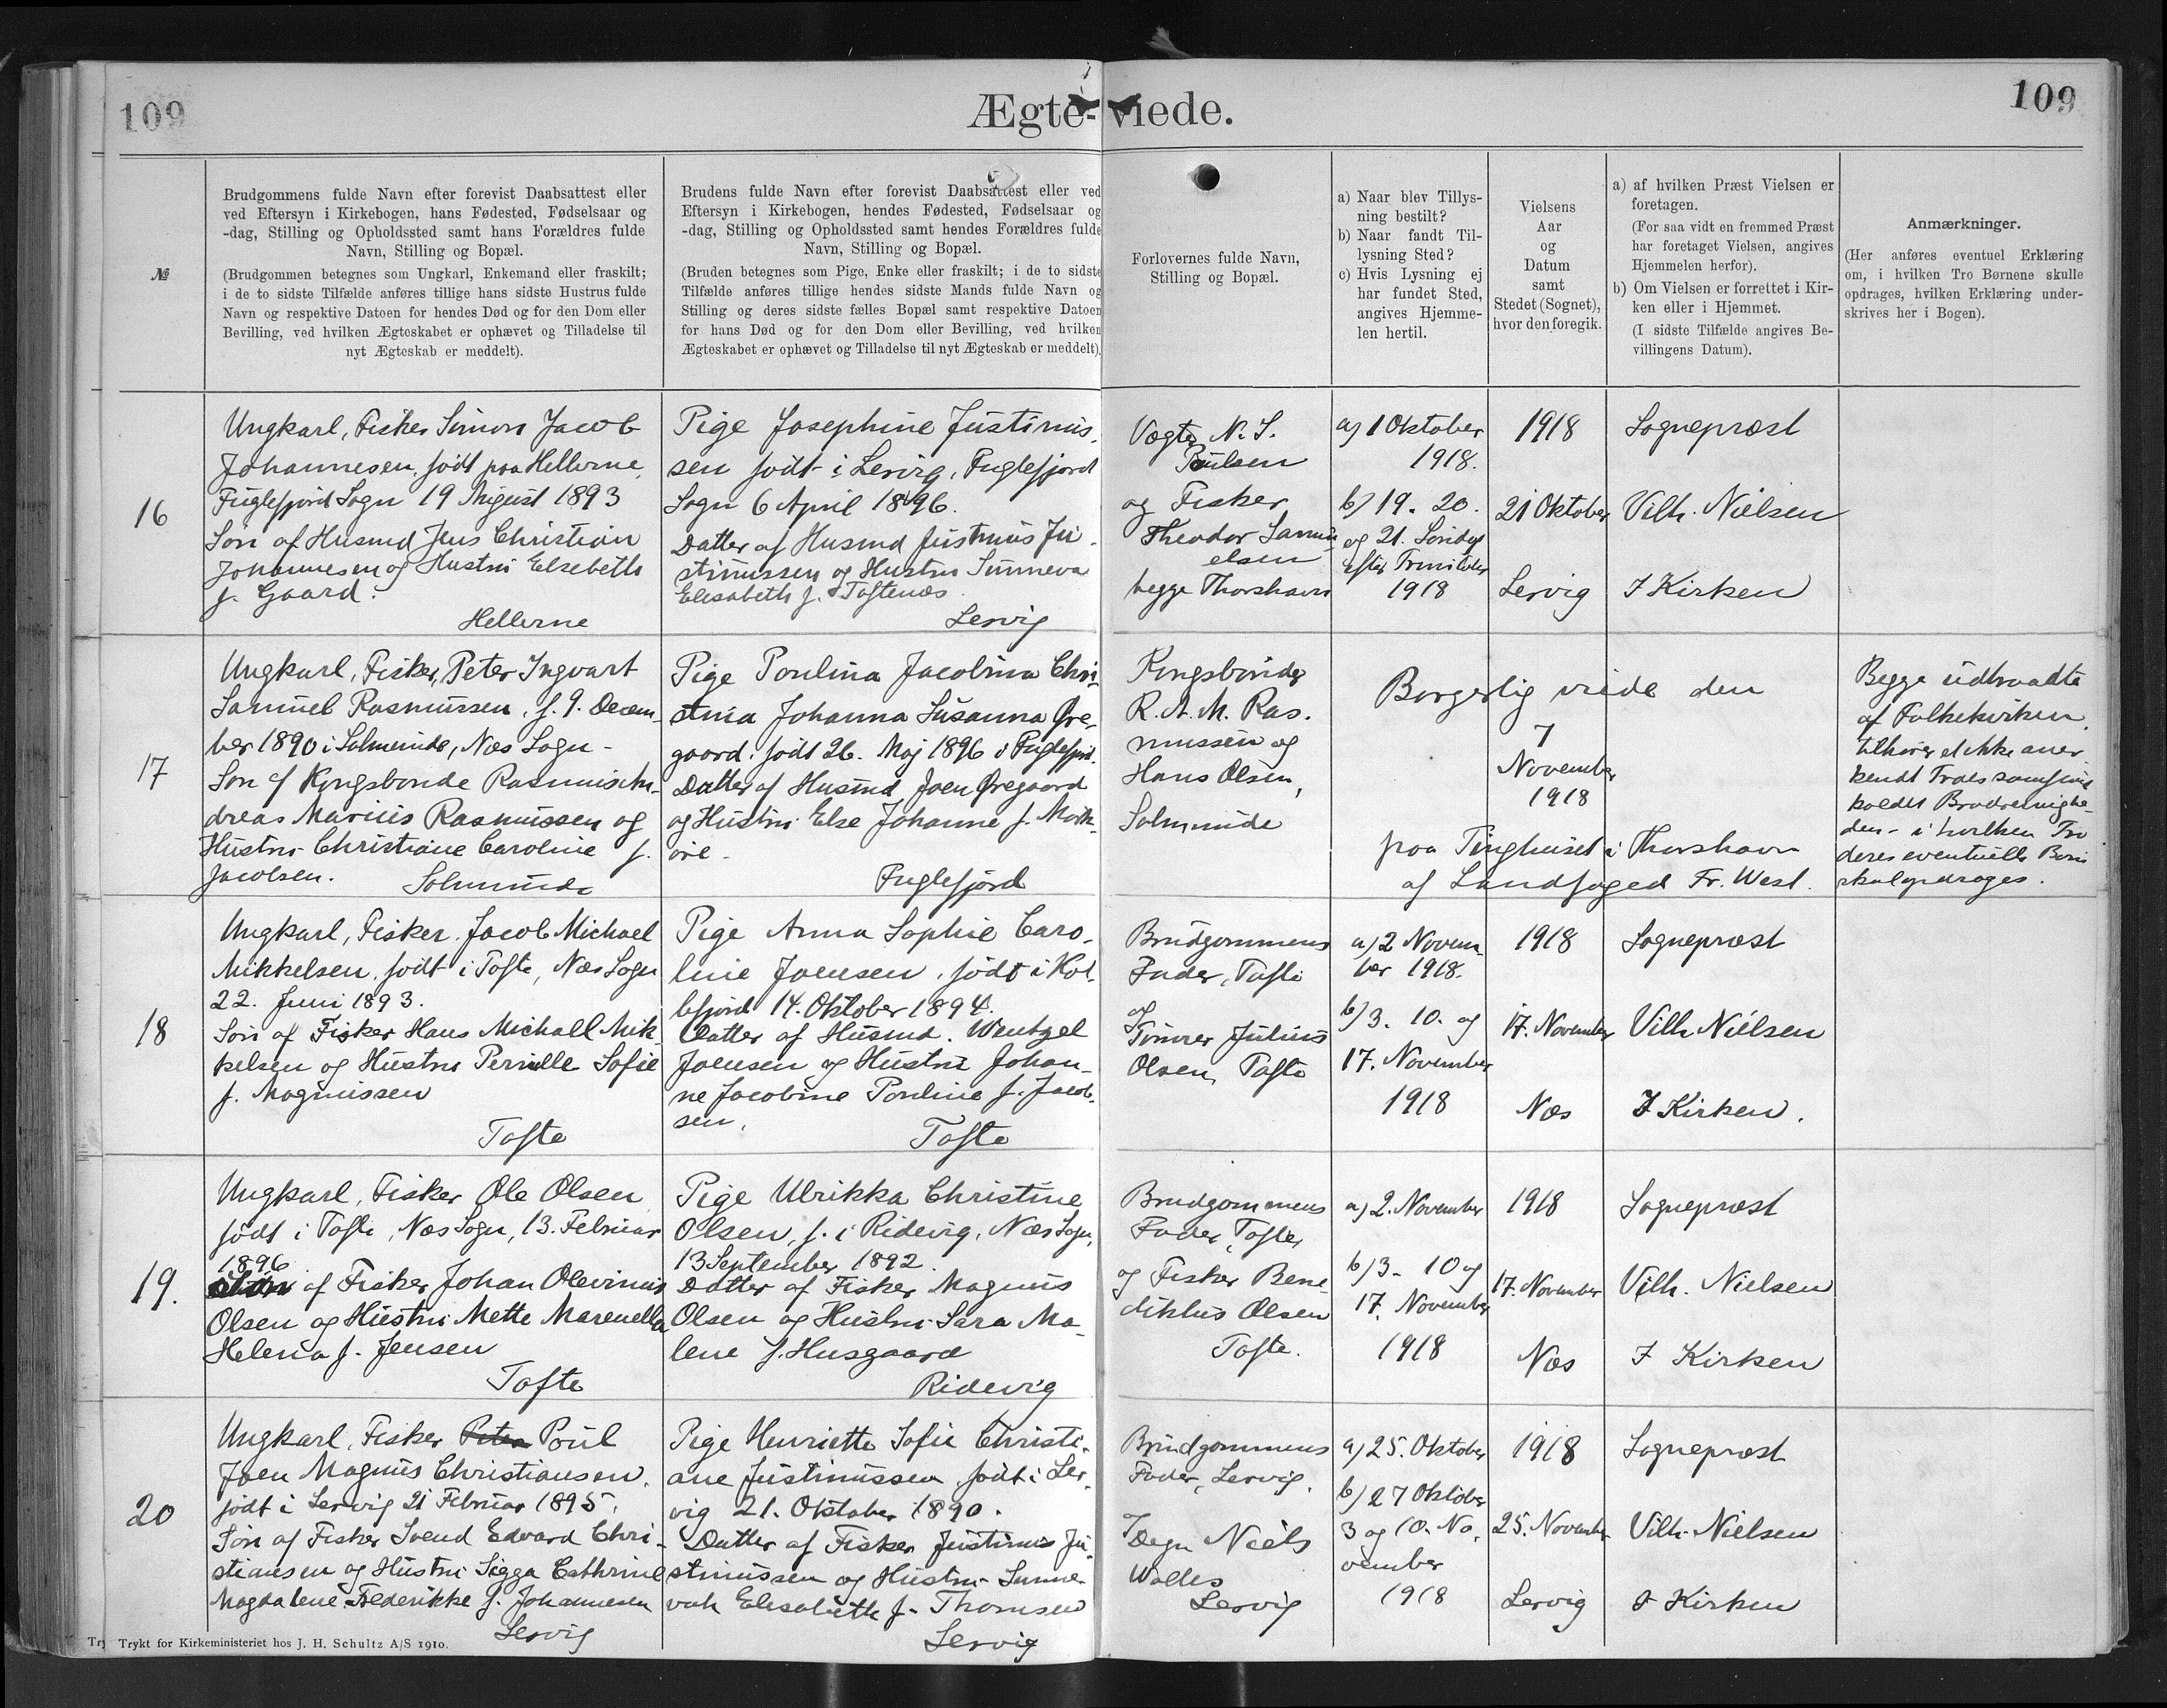 109
Ægte-viede.
109
№
Brudgommens fulde Navn efter forevist Daabsattest eller
ved Eftersyn i Kirkebogen, hans Fødested, Fødselsaar og
-dag, Stilling og Opholdssted samt hans Forældres fulde
Navn, Stilling og Bopæl.
(Brudgommen betegnes som Ungkarl, Enkemand eller fraskilt;
i de to sidste Tilfælde anføres tillige hans sidste Hustrus fulde
Navn og respektive Datoen for hendes Død og for den Dom eller
Bevilling, ved hvilken Ægteskabet er ophævet og Tilladelse til
nyt Ægteskab er meddelt).
Brudens fulde Navn efter forevist Daabsattest eller ved
Eftersyn i Kirkebogen, hendes Fødested, Fødselsaar og
-dag, Stilling og Opholdssted samt hendes Forældres fulde
Navn, Stilling og Bopæl.
(Bruden betegnes som Pige, Enke eller fraskilt; i de to sidste
Tilfælde anføres tillige hendes sidste Mands fulde Navn og
Stilling og deres sidste fælles Bopæl samt respektive Datoen
for hans Død og for den Dom eller Bevilling, ved hvilken
Ægteskabet er ophævet og Tilladelse til nyt Ægteskab er meddelt).
Forlovernes fulde Navn,
Stilling og Bopæl.
a) Naar blev Tillys-
ning bestilt?
b) Naar fandt Til-
lysning Sted?
c) Hvis Lysning ej
har fundet Sted,
angives Hjemme-
len hertil.
Vielsens
Aar
og
Datum
samt
Stedet (Sognet),
hvor den foregik.
a) af hvilken Præst Vielsen er
foretagen.
(For saa vidt en fremmed Præst
har foretaget Vielsen, angives
Hjemmelen herfor).
b) Om Vielsen er forrettet i Kir-
ken eller i Hjemmet.
(I sidste Tilfælde angives Be-
villingens Datum).
Anmærkninger.
(Her anføres eventuel Erklæring
om, i hvilken Tro Børnene skulle
opdrages, hvilken Erklæring under-
skrives her i Bogen).
16
Ungkarl, Fisker Simon Jacob
Johannesen, født paa Hellerne,
Fuglefjord Sogn 19 August 1893
Søn af Husmd Jens Christian
Johannesen og Hustru Elsebeth
f. Gaard.
Hellerne
Pige Josephine Justinus-
sen født i Lervig, Fuglefjord
Sogn 6 April 1896.
Datter af Husmd Justinus Ju-
stinussen og Hustru Sunneva
Elisabeth f. Toftenæs
Lervig
Vægter N. S.
Poulsen
og Fisker
Theodor Samu-
elsen
begge Thorshavn
a) 1 Oktober
1918.
b) 19. 20.
og 21. Søndag
efter Trinitatis
1918
1918
21 Oktober
Lervig
Sognepræst
Vilh. Nielsen
I Kirken
17
Ungkarl, Fisker, Peter Ingvart
Samuel Rasmussen, f. 9. Decem-
ber 1890 i Solmunde, Næs Sogn -
Søn af Kongsbonde Rasmus An-
dreas Marius Rasmussen og
Hustru Christiane Caroline f.
Jacobsen.
Solmunde
Pige Poulina Jacobina Chri-
stina Johanna Susanna Øre-
gaard, født 26. Maj 1896 i Fuglefjord.
Datter af Husmd Joen Øregaard
og Hustru Else Johanne f. Mørk-
øre -
Fuglefjord
Kongsbonde
R. A. M. Ras-
mussen og
Hans Olsen,
Solmunde
Borgerlig viede den
7
November
1918
paa Tinghuset i Thorshavn
af Landfoged Fr. West.
Begge udtraadte
af Folkekirken,
tilhører et ikke aner-
kendt Troessamfund
kaldet Brødremenighe-
den - i hvilken Tro
deres eventuelle Børn
skal opdrages.
18
Ungkarl, Fisker, Jacob Michael
Mikkelsen, født i Tofte, Næs Sogn
22. Juni 1893.
Søn af Fisker Hans Michael Mik-
kelsen og Hustru Pernille Sofie
f. Magnussen
Tofte
Pige Anna Sophie Caro-
line Joensen, født i Kol-
lefjord 14. Oktober 1894.
Datter af Husmd. Wentzel
Joensen og Hustru Johan-
ne Jacobine Pouline f. Jacob-
sen.
Tofte
Brudgommens
Fader, Tofte
og
Tømrer Julius
Olsen, Tofte
a) 2 Novem-
ber 1918.
b) 3. 10. og
17. November
1918
1918
17. November
Næs
Sognepræst
Vilh. Nielsen
I Kirken.
19.
Ungkarl, Fisker Ole Olsen
født i Tofte, Næs Sogn, 13. Februar
1896
Søn af Fisker Johan Olevinus
Olsen og Hustru Mette Marenella
Helena f. Jensen
Tofte
Pige Ulrikka Christine
Olsen, f. i Ridevig, Næs Sogn,
13 September 1892.
Datter af Fisker Magnus
Olsen og Hustru Sara Ma-
lene f. Husgaard
Ridevig
Brudgommens
Fader, Tofte
og Fisker Bene-
diktus Olsen
Tofte.
a) 2. November
b) 3 - 10 og
17. November
1918
1918
17. November
Næs
Sognepræst
Vilh. Nielsen
I Kirken
20
Ungkarl, Fisker Peter Poul
Joen Magnus Christiansen,
født i Lervig 21 Februar 1895.
Søn af Fisker Svend Edvard Chri-
stiansen og Hustru Sigga Cathrine
Magdalene Frederikke f. Johannesen
Lervig
Pige Henriette Sofie Christi-
ane Justinussen, født i Ler-
vig 21. Oktober 1890.
Datter af Fisker Justinus Ju-
stinussen og Hustru Sunne-
vah Elisabeth f. Thomsen
Lervig
Brudgommens
Fader, Lervig.
Degn Niels
Wolles
Lervig
a) 25. Oktober
b) 27 Oktober
3 og 10. No-
vember
1918
1918
25. November
Lervig
Sognepræst
Vilh. Nielsen
I Kirken
Trykt for Kirkeministeriet hos J. H. Schultz A/S 1910.